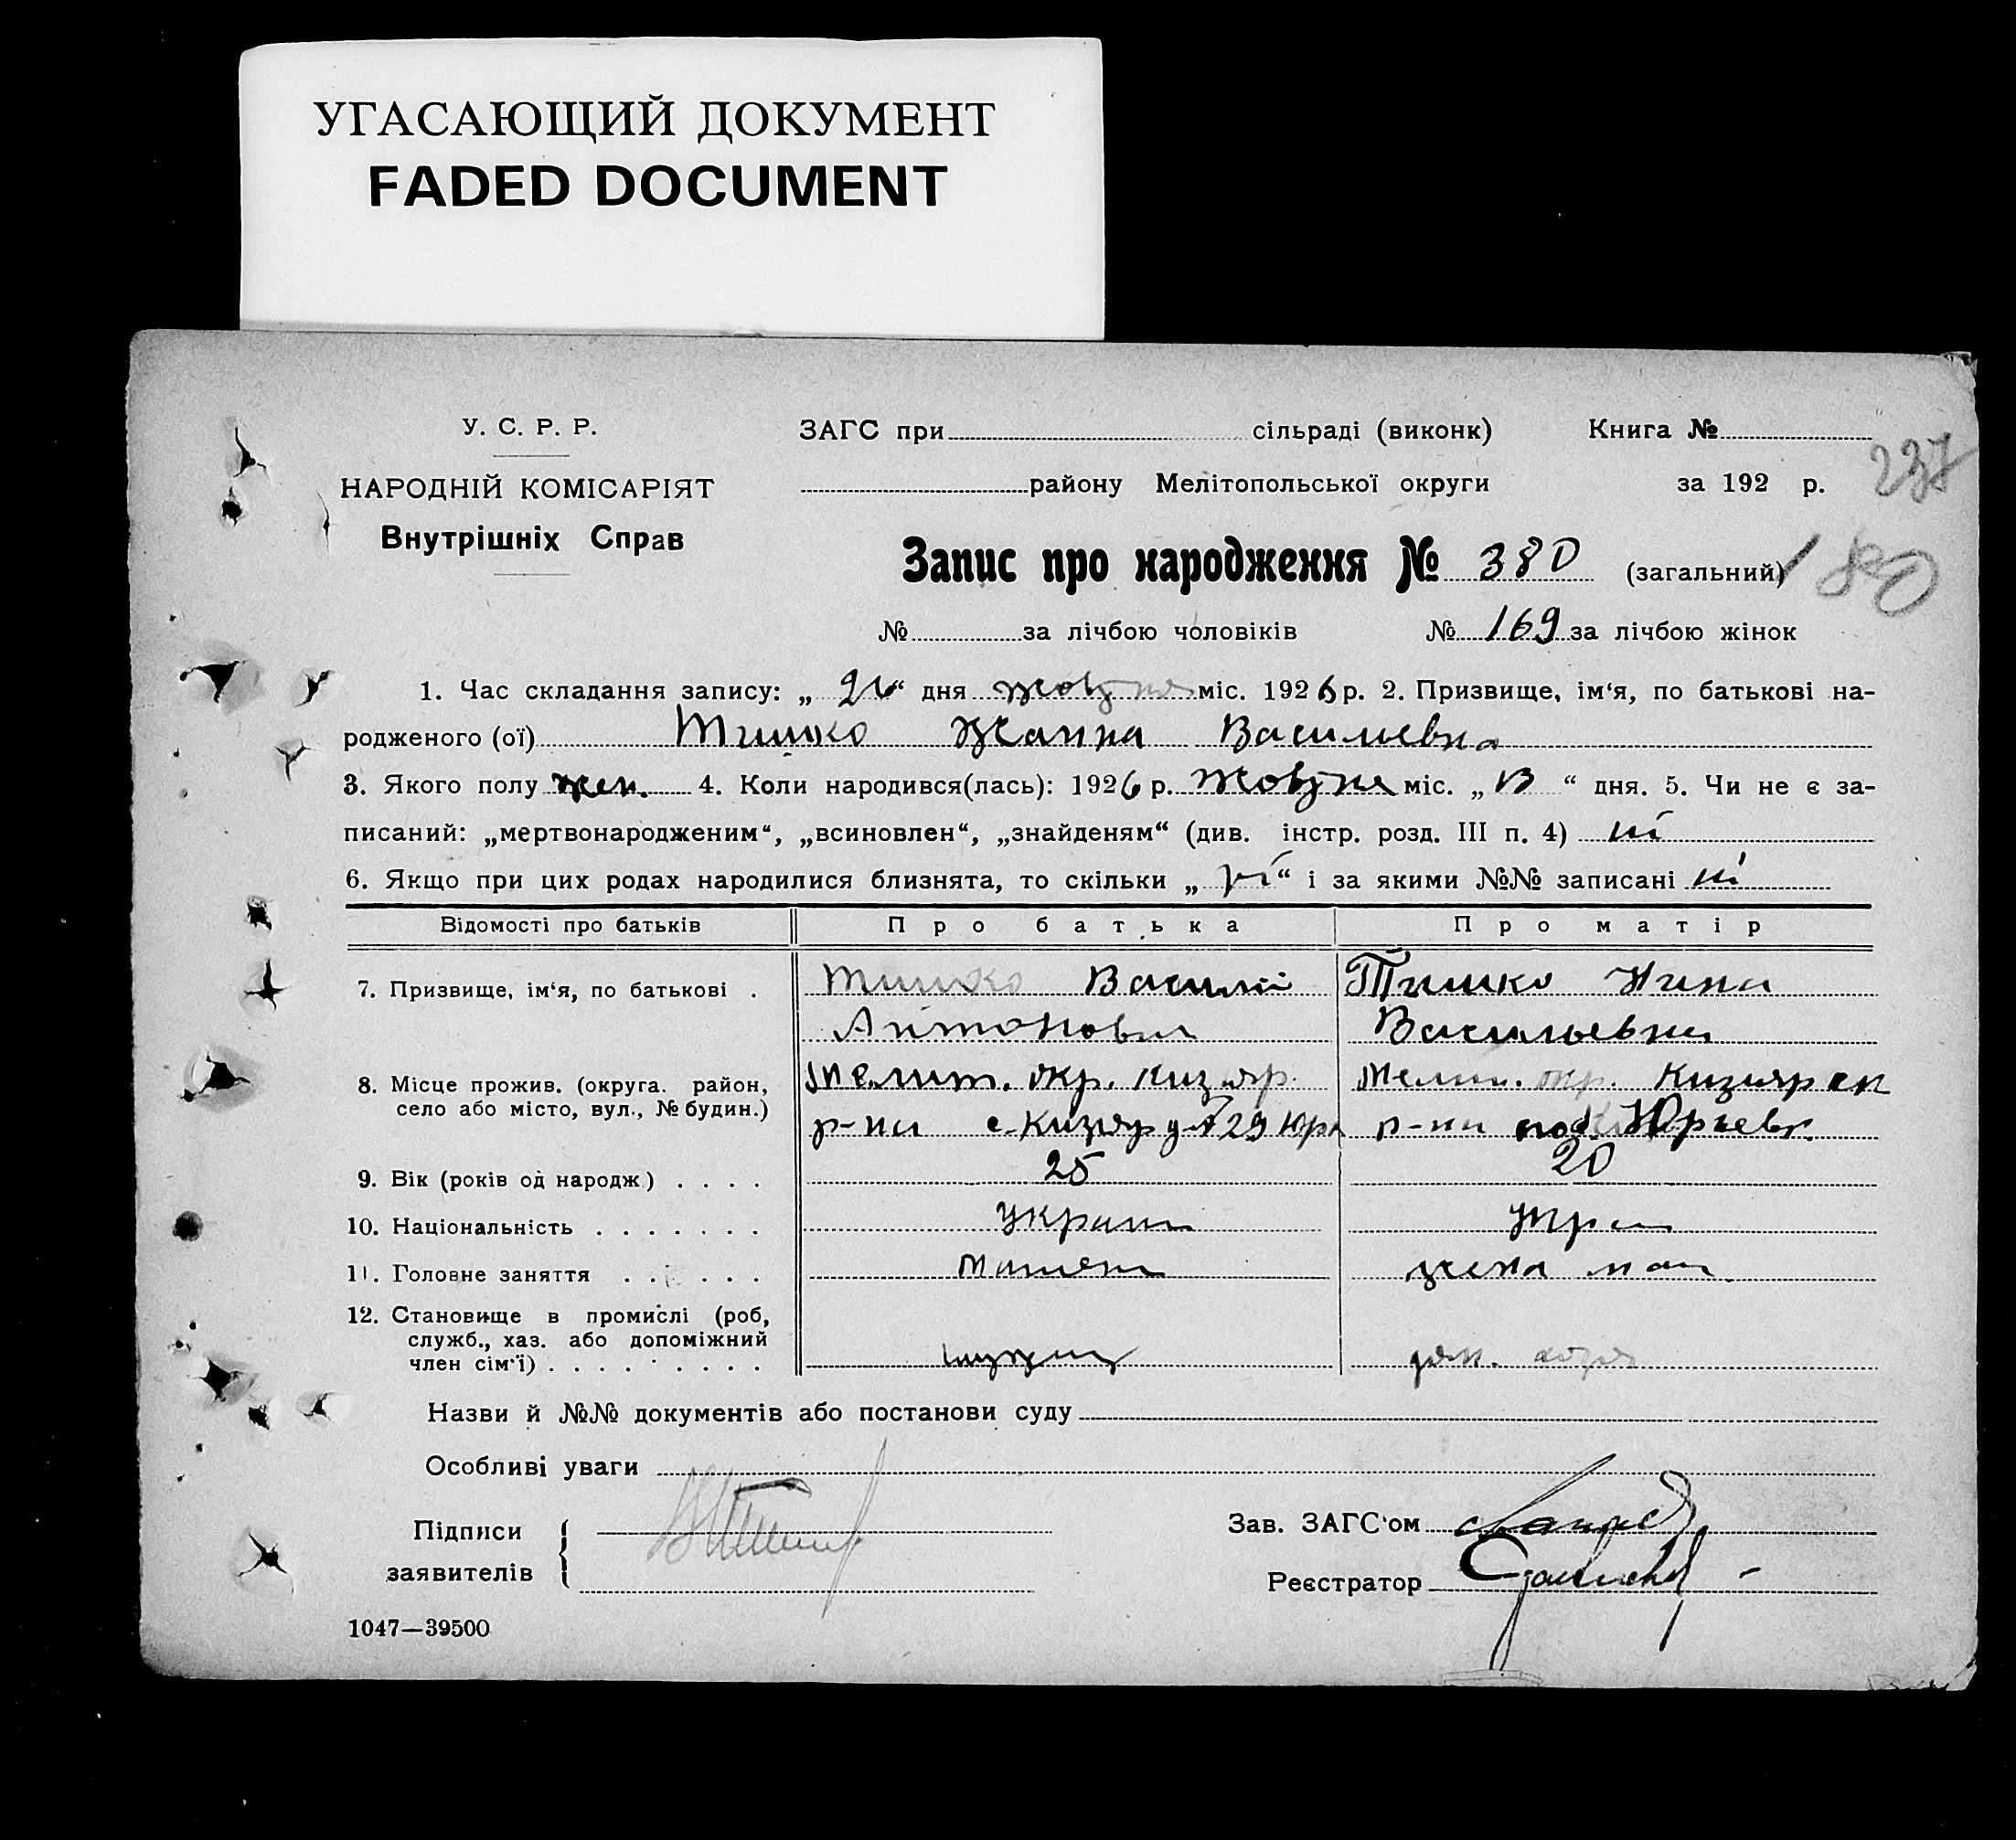 УГАСАЮЩИЙ ДОКУМЕНТ
FADED DOCUMENT
У. С. Р. Р.
НАРОДНІЙ КОМІСАРІЯТ
Внутрішніх Справ
ЗАГС при сільраді (виконк) Книга №
району Мелітопольської округи за 192 р. 237
Запис про народження № 380 (загальний) 180
№ за лічбою чоловіків № 169 за лічбою жінок
1. Час складання запису: „ “ дня жовтня міс. 1926 р. 2. Призвище, ім‘я, по батькові на-
родженого (ої) Тишко Жанна Васильевна
3. Якого полу жен. 4. Коли народився(лась): 1926 р. жовтня міс. „ “ дня. 5. Чи не є за-
писаний: „мертвонародженим“, „всиновлен“, „знайденям“ (див. інстр. розд. III п. 4) ні
6. Якщо при цих родах народилися близнята, то скільки „ ні “ і за якими №№ записані ні
Відомості про батьків Про батька Про матір
7. Призвище, ім‘я, по батькові . Тишко Василий Тишко Нина
Антонович Васильевна
8. Місце прожив. (округа. район, Мелит. окр. Кизияр. Мелит. окр. Кизиярск
село або місто, вул., № будин.) р-на с. Кизияр р-на Юрьевк.
9. Вік (років од народж) . . . . 25 20
10. Національність . . . . . . . Украин Укра
11. Головне заняття . . . . . . жена маш.
12. Становище в промислі (роб,
служб., хаз. або допоміжний
член сім‘ї) . . . . . . . . .
Назви й №№ документів або постанови суду
Особливі уваги
Підписи
заявителів
Зав. ЗАГС‘ом
Реєстратор
1047—39500